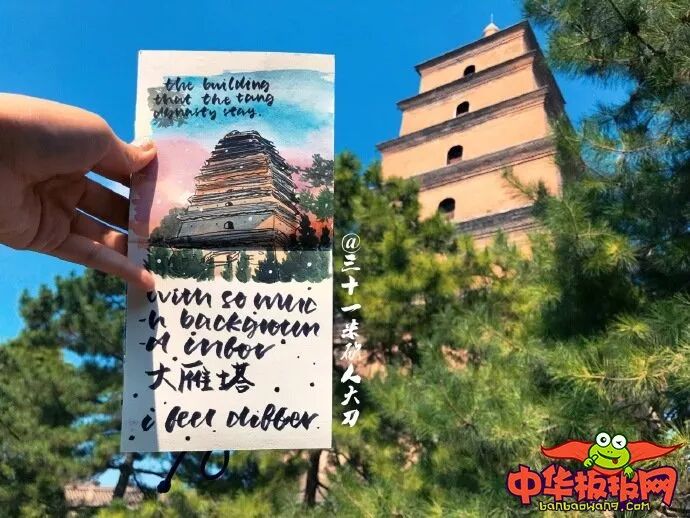 the building
that the tang
dynasty stay.
with so muc
-h backgroun
-d infor
大雁塔
i feel differ.
@三十一
人大刀
中华板报网
banbaowang.com